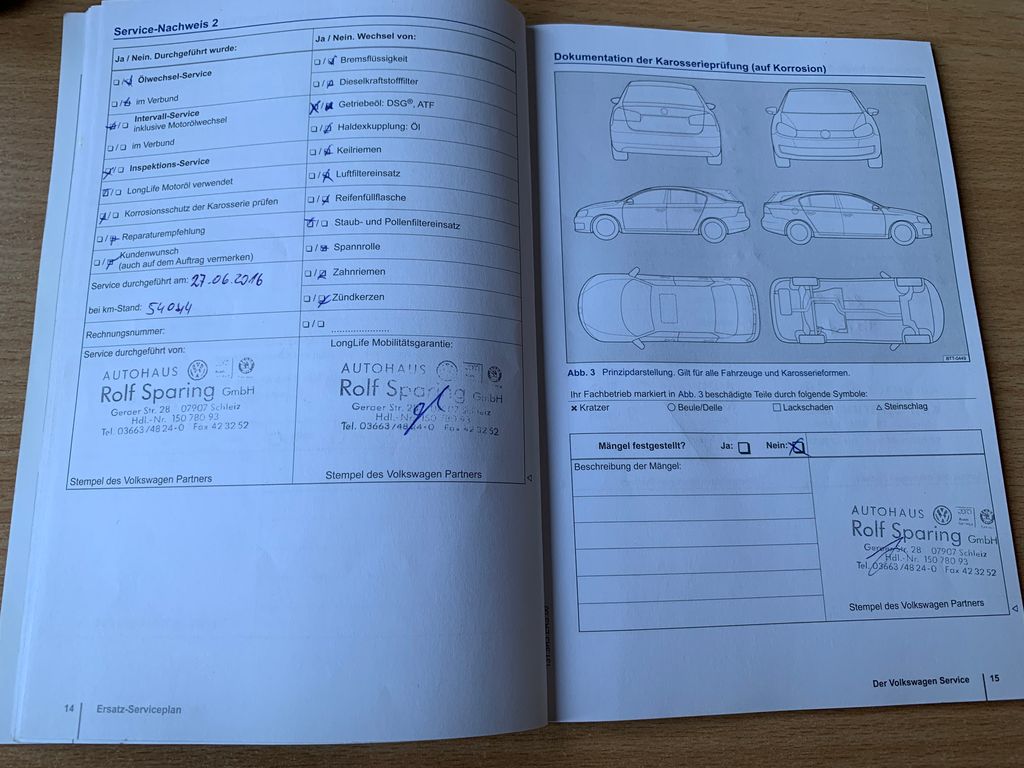 Service-Nachweis 2
Ja / Nein. Durchgeführt wurde:
❑ / ❑ Ölwechsel-Service
❑ / ❑ im Verbund
❑ / ❑ Intervall-Service
inklusive Motorölwechsel
❑ / ❑ im Verbund
❑ / ❑ Inspektions-Service
❑ / ❑ LongLife Motoröl verwendet
❑ / ❑ Korrosionsschutz der Karosserie prüfen
❑ / ❑ Reparaturempfehlung
❑ / ❑ Kundenwunsch
(auch auf dem Auftrag vermerken)
Service durchgeführt am: 27.06.2016
bei km-Stand: 54044
Rechnungsnummer:
Service durchgeführt von:
AUTOHAUS
Rolf Sparing GmbH
Geraer Str. 28 07907 Schleiz
Hdl.-Nr. 150 780 93
Tel. 03663/48 24-0 Fax 42 32 52
Stempel des Volkswagen Partners
Ja / Nein. Wechsel von:
❑ / ❑ Bremsflüssigkeit
❑ / ❑ Dieselkraftstofffilter
❑ / ❑ Getriebeöl: DSG®, ATF
❑ / ❑ Haldexkupplung: Öl
❑ / ❑ Keilriemen
❑ / ❑ Luftfiltereinsatz
❑ / ❑ Reifenfüllflasche
❑ / ❑ Staub- und Pollenfiltereinsatz
❑ / ❑ Spannrolle
❑ / ❑ Zahnriemen
❑ / ❑ Zündkerzen
❑ / ❑ .....................
LongLife Mobilitätsgarantie:
AUTOHAUS
Rolf Sparing GmbH
Geraer Str. 28 07907 Schleiz
Hdl.-Nr. 150 780 93
Tel. 03663/48 24-0 Fax 42 32 52
Stempel des Volkswagen Partners
14 Ersatz-Serviceplan
Dokumentation der Karosserieprüfung (auf Korrosion)
BTT-0449
Abb. 3 Prinzipdarstellung. Gilt für alle Fahrzeuge und Karosserieformen.
Ihr Fachbetrieb markiert in Abb. 3 beschädigte Teile durch folgende Symbole:
✖ Kratzer ○ Beule/Delle □ Lackschaden △ Steinschlag
Mängel festgestellt? Ja: ❑ Nein: ❑
Beschreibung der Mängel:
AUTOHAUS
Rolf Sparing GmbH
Geraer Str. 28 07907 Schleiz
Hdl.-Nr. 150 780 93
Tel. 03663/48 24-0 Fax 42 32 52
Stempel des Volkswagen Partners
Der Volkswagen Service 15